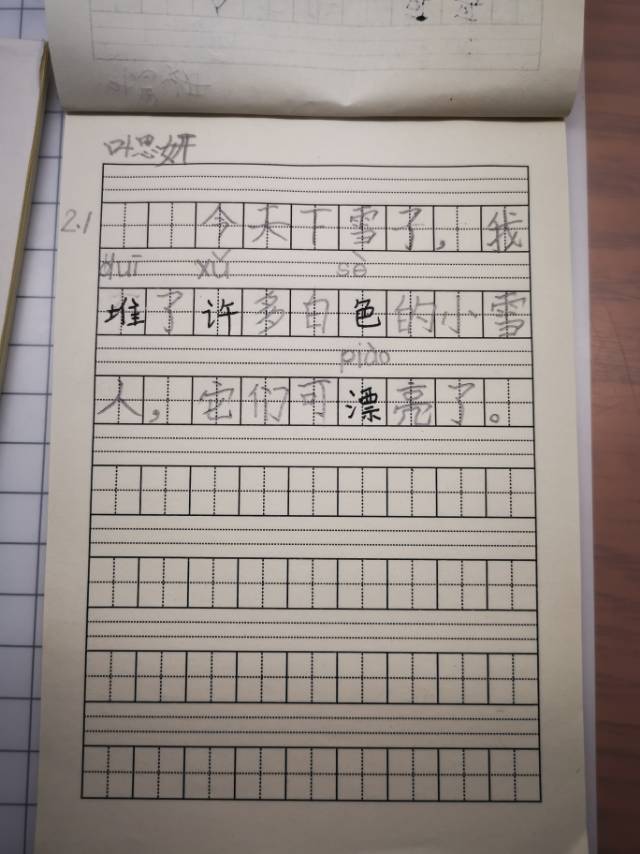 叶思妍
2.1
今天下雪了，我
duī xǔ sè
堆了许多白色的小雪
piào
人，它们可漂亮了。